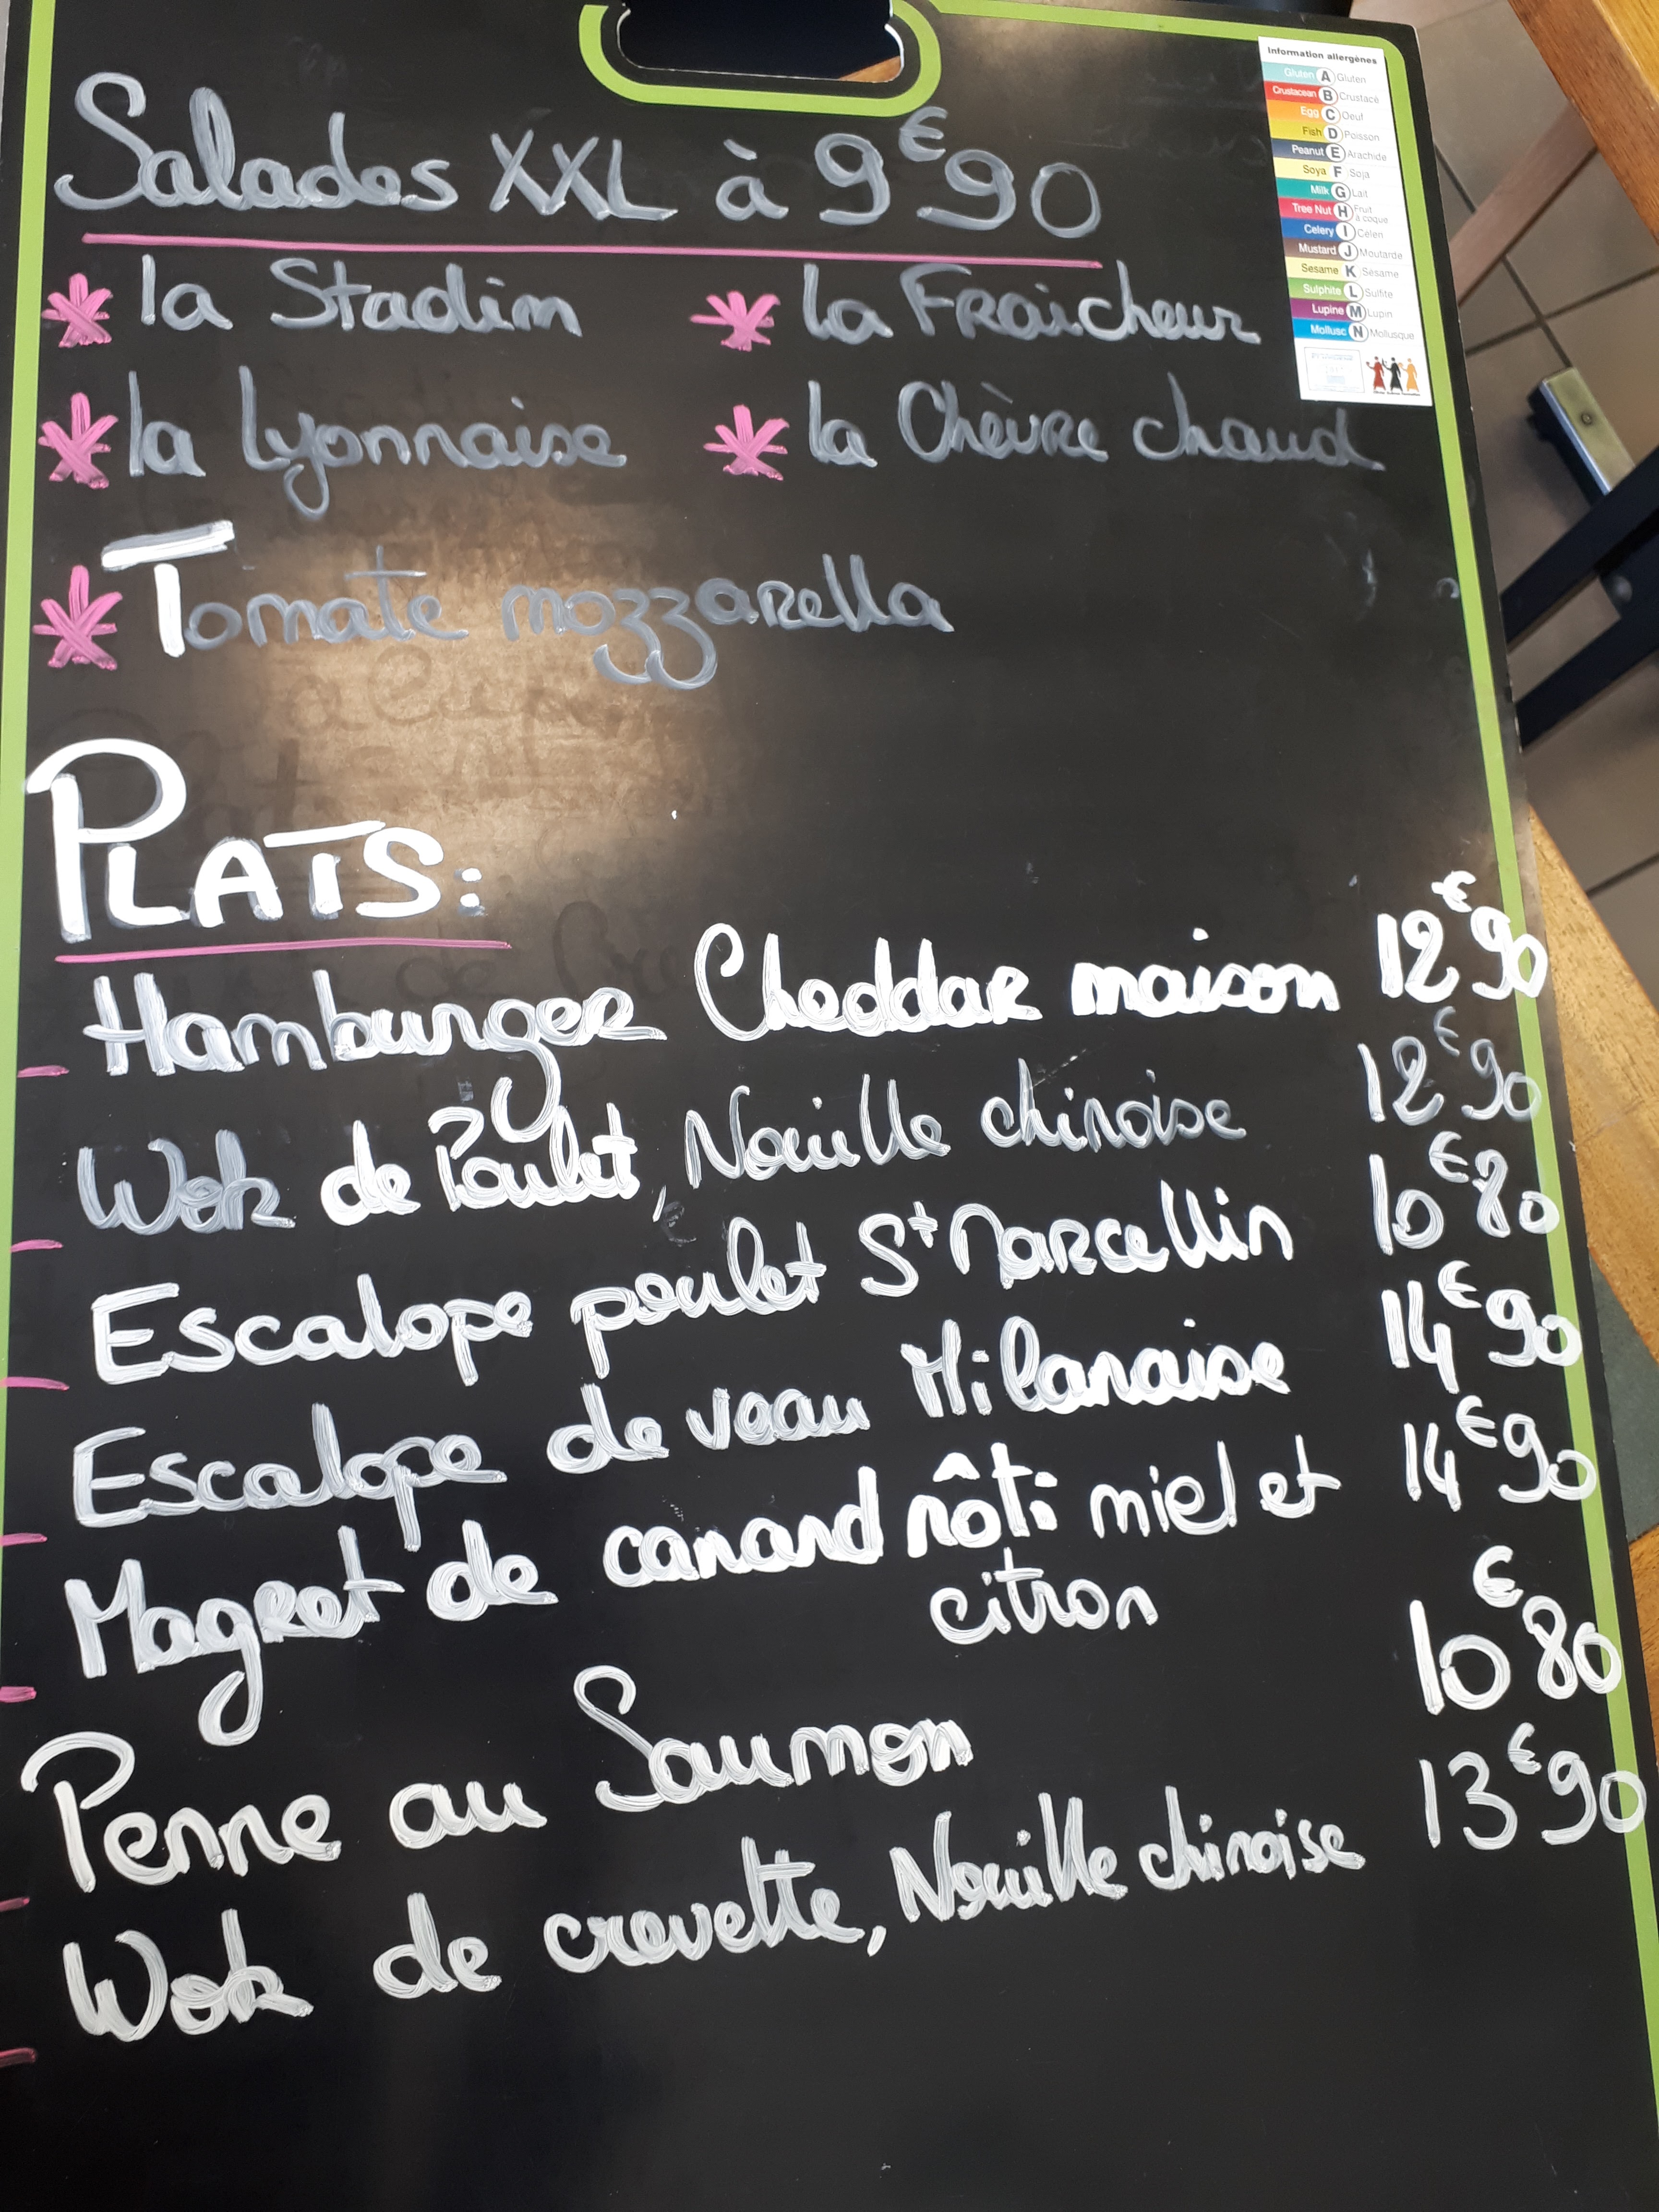 Salades XXL à 9€90
la Stadim
la Fraîcheur
la Lyonnaise
la Chèvre chaud
Tomate mozzarella
PLATS:
Hamburger Cheddar maison 12€90
Wok de Poulet, Nouille chinoise 12€90
Escalope poulet St Marcellin 10€80
Escalope de veau Milanaise 14€90
Magret de canard rôti miel et 14€90
citron
Penne au Saumon 10€80
Wok de crevette, Nouille chinoise 13€90
Information allergènes
Gluten A Gluten
Crustacean B Crustacé
Egg C Oeuf
Fish D Poisson
Peanut E Arachide
Soya F Soja
Milk G Lait
Tree Nut H Fruit à coque
Celery I Céleri
Mustard J Moutarde
Sesame K Sésame
Sulphite L Sulfite
Lupine M Lupin
Mollusc N Mollusque